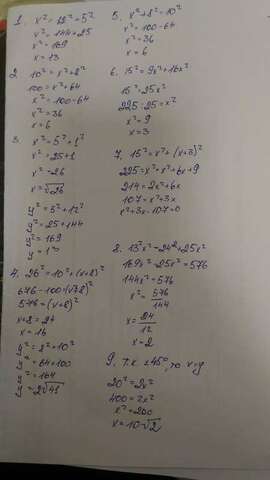 1. x² = 12² + 5²
x² = 144 + 25
x² = 169
x = 13
2. 10² = x² + 8²
100 = x² + 64
x² = 100 - 64
x² = 36
x = 6
3. x² = 5² + 1²
x² = 25 + 1
x² = 26
x = √26
y² = 5² + 12²
y² = 25 + 144
y² = 169
y = 13
4. 26² = 10² + (x+8)²
676 - 100 = (x+8)²
576 = (x+8)²
x + 8 = 24
x = 16
= 8² + 10²
= 64 + 100
= 164
= 2√41
5. x² + 8² = 10²
x² = 100 - 64
x² = 36
x = 6
6. 15² = 9x² + 16x²
15² = 25x²
225 : 25 = x²
x² = 9
x = 3
7. 15² = x² + (x+3)²
225 = x² + x² + 6x + 9
214 = 2x² + 6x
107 = x² + 3x
x² + 3x - 107 = 0
8. 13²x² = 24² + 25x²
169x² - 25x² = 576
144x² = 576
x² = 576/144
x = 24/12
x = 2
9. т.к. 45°, то x = y
20² = 2x²
400 = 2x²
x² = 200
x = 10√2